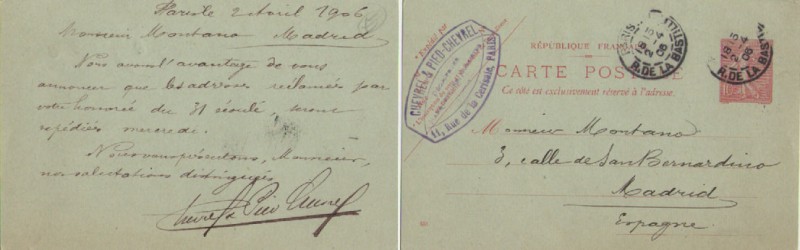 Paris le 2 Avril 1906
Monsieur Montano Madrid
Nous avons l'avantage de vous
annoncer que les adresses réclamées par
votre honorée du 31 écoulé, seront
expédiées mercredi.
Nous vous présentons, Monsieur,
nos salutations distinguées
CHEVREL & PIED-CHEVREL
11, Rue de la Cerisaie, PARIS
RÉPUBLIQUE FRANÇ
CARTE POSTALE
Ce côté est exclusivement réservé à l'adresse.
R. DE LA BASTILLE
R. DE LA BAST
Monsieur Montano
3, calle de San Bernardino
Madrid
Espagne